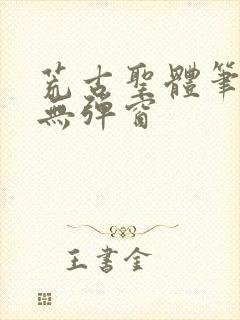 荒古聖體筆
無彈窗
王書金